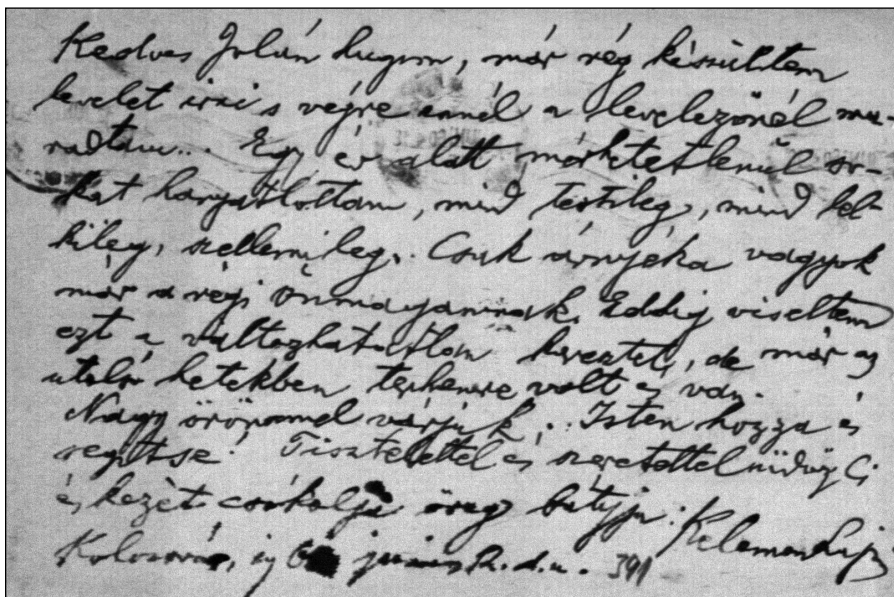 Kedves Jolán hugom, már rég készültem
levelet irni s végre ennél a levelezőnél ma-
radtam... Egy év alatt mértéktetlenül so-
kat hanyatlottam, mind testileg, mind lel-
kileg, szellemileg. Csak árnyéka vagyok
már a régi önmagamnak. Eddig viseltem
ezt a változhatatlan keresztet, de már az
utolsó hetekben terhemre volt és van.
Nagy örömmel várjuk. Isten hozza és
segitse! Tisztelettel és szeretettel üdvözli
és kezét csókolja öreg bátyja: Kelemen Lajos
Kolozsvár, d. u. 391